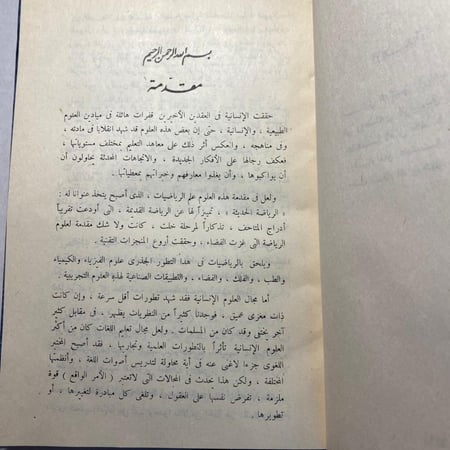 بسم الله الرحمن الرحيم
مقدمة
حققت الإنسانية فى العقدين الأخيرين قفزات هائلة فى ميادين العلوم
الطبيعية ، والإنسانية ، حتى إن بعض هذه العلوم قد شهد انقلابا فى مادته ،
وفى مناهجه ، وانعكس أثر ذلك على معاهد التعليم بمختلف مستوياتها ،
فعكف رجالها على الأفكار الجديدة ، والاتجاهات المحدثة يحاولون أن
يواكبوها ، وأن يغذوا معارفهم وخبراتهم بمعطياتها .
ولعل فى مقدمة هذه العلوم علم الرياضيات ، الذى أصبح يتخذ عنوانا له :
« الرياضة الحديثة » ، تمييزاً لها عن الرياضة القديمة ، التى أودعت تقريباً
أدراج المتاحف ، تذكاراً لمرحلة خلت ، كانت ولا شك مقدمة لعلوم
الرياضة التى غزت الفضاء ، وحققت أروع المنجزات التقنية .
ويلحق بالرياضيات فى هذا التطور الجذرى علوم الفيزياء والكيمياء
والطب ، والفلك ، والفضاء ، والتطبيقات الصناعية لهذه العلوم التجريبية .
أما مجال العلوم الإنسانية فقد شهد تطورات أقل سرعة ، وإن كانت
ذات مغزى عميق ، فوجدنا كثيراً من النظريات يظهر ، فى مقابل كثير
آخر يختفى وقد كان من المسلمات . ولعل مجال تعليم اللغات كان من أكثر
العلوم الإنسانية تأثراً بالتطورات العلمية ونتائجها ، فقد أصبح المختبر
اللغوى جزءا لاغنى عنه فى أية محاولة لتدريس أصوات اللغة ، وأنظمتها
المختلفة ، ولكن هذا يحدث فى المجالات التى لاتعتبر ( الأمر الواقع ) قوة
ملزمة ، تفرض نفسها على العقول ، وتلغى كل مبادرة لتغييرها ، أو
تطويرها .